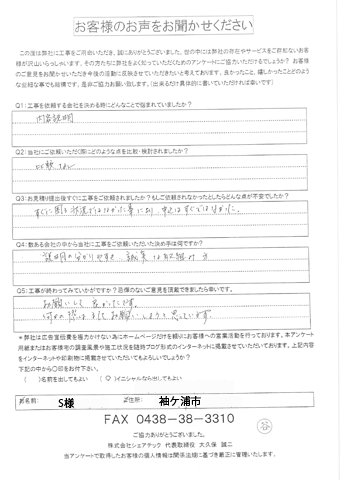 お客様のお声をお聞かせください
この度は弊社に工事をご用命いただき、誠にありがとうございました。世の中には弊社の存在やサービスをご存知ないお客
様が沢山いらっしゃいます。その方たちに弊社をよく知っていただくためのアンケートにご協力いただけるでしょうか? お客様
のご意見をお聞かせいただき今後の活動に反映させていただきたいと考えております。良かったこと、嬉しかったことどのよう
な些細な事でも結構です。是非ご協力お願い致します。(出来るだけ具体的に書いていただければ幸いです)
Q1:工事を依頼する会社を決める時にどんなことで悩まれていましたか?
内容説明
Q2:当社にご依頼いただく際にどのような点を比較・検討されましたか?
比較なし
Q3:お見積り提出後すぐに工事をご依頼されましたか?もしご依頼されなかったとしたらどんな点が不安でしたか?
すぐに困る状況ではなかった事により、申込はすぐではなかった。
Q4:数ある会社の中から当社に工事をご依頼いただいた決め手は何ですか?
説明の分かりやすさ、誠実な取組み方
Q5:工事が終わってみていかがですか?忌憚のないご意見を頂戴できましたら幸いです。
お願いして良かったです。
何かの際にはまたお願いしようと思っています。
*弊社は広告宣伝費を極力かけない為にホームページだけを頼りにお客様への営業活動を行っております。本アンケート
用紙またはお客様宅の調査風景や施工状況を随時ブログ形式のインターネットに掲載させていただいております。上記内容
をインターネットや印刷物に掲載させていただいてもよろしいでしょうか?
下記の中から〇印をお付下さい。
( )名前を出してもよい ( ○ )イニシャルなら出してもよい
お名前: S様 ご住所: 袖ケ浦市
FAX 0438-38-3310
谷
ご協力ありがとうございました。
株式会社シェアテック 代表取締役 大久保 誠二
当アンケートで取得したお客様の個人情報は関係法規に基づき厳正に管理いたします。